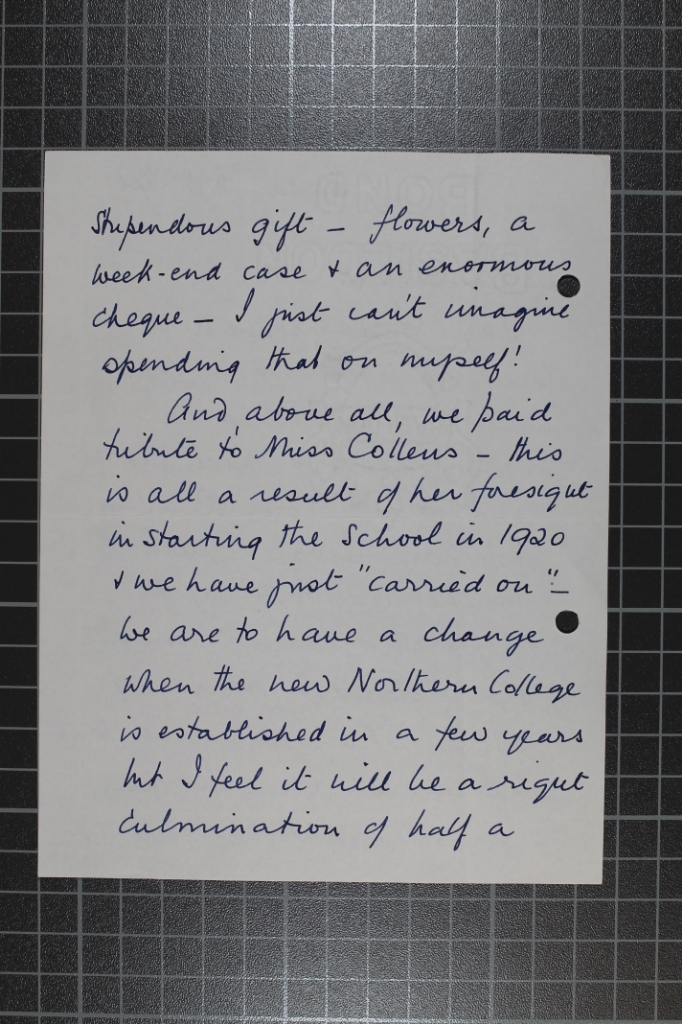 stupendous gift – flowers, a
week-end case & an enormous
cheque – I just can't imagine
spending that on myself!
And, above all, we paid
tribute to Miss Collens – this
is all a result of her foresight
in starting the School in 1920
& we have just "carried on" –
We are to have a change
when the new Northern College
is established in a few years
but I feel it will be a right
culmination of half a